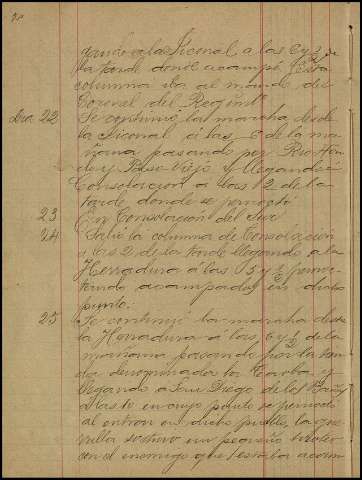 á la Siconal a las 6 y ½ de
la tarde donde acampó. Esta
columna iba al mando del
Coronel del Regimto
Dia 22 Se continuó la marcha desde
la Siconal á las 6 de la ma
ñana pasando por Rio Hon
do y Paso Viejo y llegando á
Consolacion á las 2 de la
tarde donde se pernoctó
23 En Consolacion del Sur
24 Salió la columna de Consolacion
á las 2 de la tarde llegando a la
Herradura á las 5 y ½ pernoc
tando acampados en dicho
punto.
25 Se continuó la marcha desde
la Herradura á las 6 y ½ de la
mañana pasando por la
denominada la y
llegando á San Diego de los Baños
a las 10 en cuyo punto se pernoctó
al entrar en dicho pueblo, la
sostuvo un pequeño tiroteo
con el enemigo que estaba acam